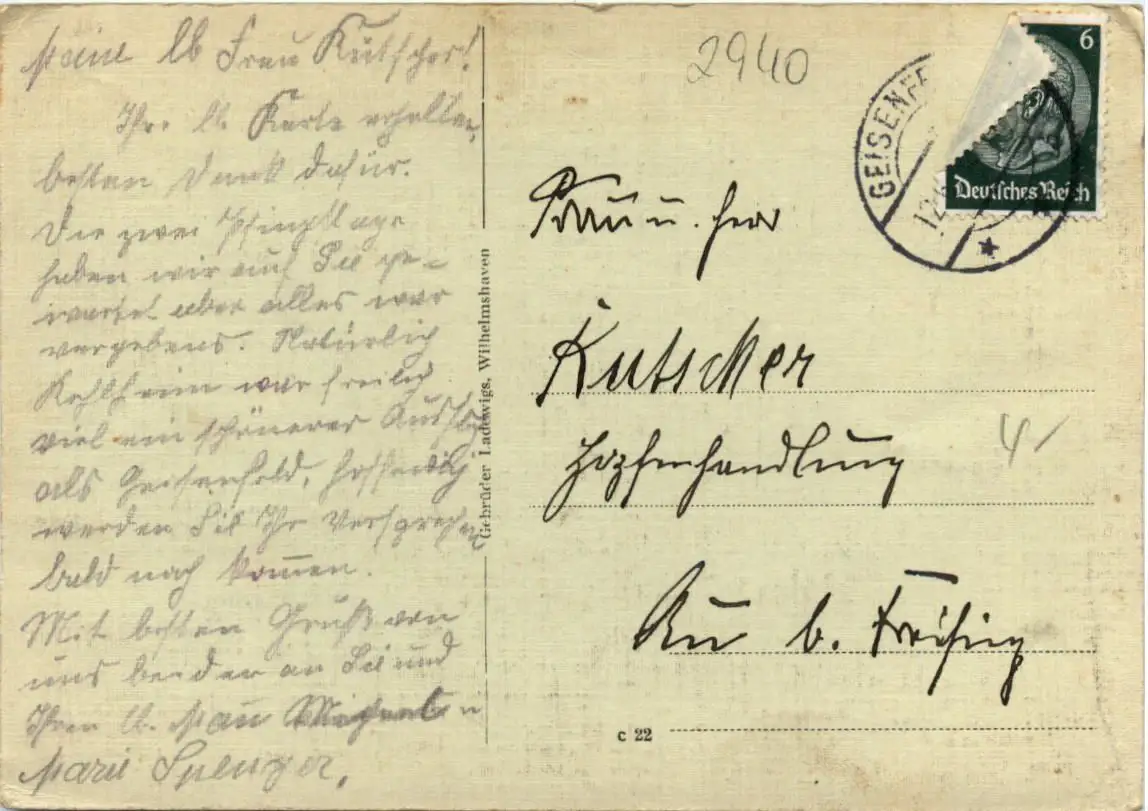 Meine lb Frau Kutscher!
Ihre lb. Karte erhalten,
besten Dank dafür.
Die zwei Pfingsttage
haben wir auf Sie ge-
wartet aber alles war
vergebens. Natürlich
Kehlheim war freilich
viel ein schönerer Ausflug
als Geisenfeld, hoffendlich
werden Sie Ihr Versprechen
bald nach kommen.
Mit besten Gruß von
uns beiden an Sie und
Ihren lb. Mann
Marie
Gebrüder Ladewigs, Wilhelmshaven
2940
GEISENFE
12
6
Deutsches Reich
Frau u. Herr
Kutscher
Hopfenhandlung
4
Au b. Freising
c 22